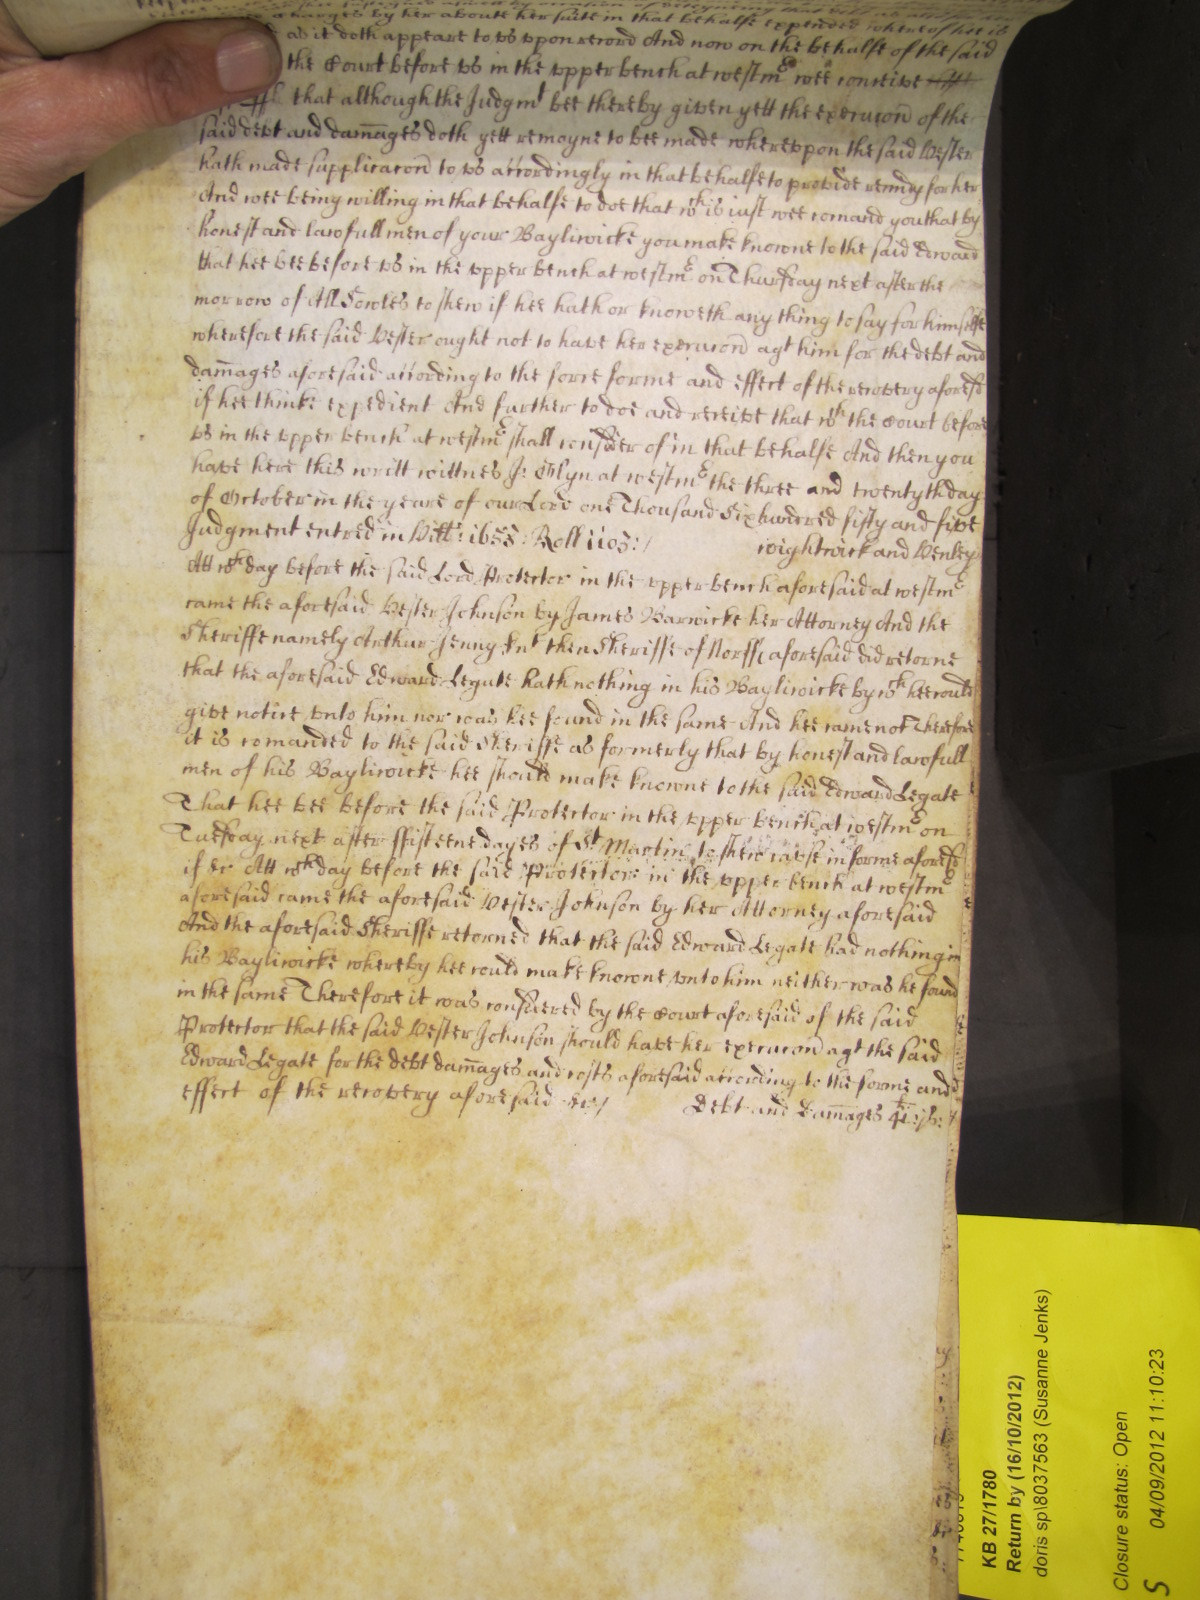 Charges by her aboute her suite in that behalfe expended whereof hee is
as it doth appeare to vs vpon record And now on the behalfe of the said
the Court before vs in the vpper bench at westmr wee conceive
that although the Judgmt bee thereby given yett the execucon of the
said debt and damages doth yett remayne to bee made wherevpon the said Hester
hath made supplicacon to vs accordingly in that behalfe to provide remedy for her
And wee being willing in that behalfe to doe that wch is iust wee comand you that by
honest and lawfull men of your Bayliwicke you make knowne to the said Edward
that hee bee before vs in the vpper bench at westmr on Thursday next after the
morrow of All Soules to shew if hee hath or knoweth any thing to say for himselfe
wherefore the said Hester ought not to have her execucon agt him for the debt and
damages aforesaid according to the force forme and effect of the recovery aforesd
if hee thinke expedient And further to doe and receive that wch the Court before
vs in the vpper bench at westmr shall consider of in that behalfe And then you
have here this writt wittnes J: Glyn at westmr the three and twentyth day
of October in the yeare of our Lord one Thousand Six hundred fifty and five
Judgment entred in Hill: 1653: Roll 1103:/ wightwick and Henley
Att wch day before the said Lord Protector in the vpper bench aforesaid at westmr
came the aforesaid Hester Johnson by James Barwicke her Attorney And the
Sheriffe namely Arthur Jenny Knt then Sheriffe of Norff aforesaid did retorne
that the aforesaid Edward Legate hath nothing in his Bayliwicke by wch hee could
give notice vnto him nor was hee found in the same And hee came not Therefore
it is comanded to the said Sheriffe as formerly that by honest and lawfull
men of his Bayliwicke hee should make knowne to the said Edward Legate
That hee bee before the said Protector in the vpper bench at westmr on
Tuesday next after ffifteene dayes of St Martin to shew cause in forme aforesd
if &c Att wch day before the said Protector in the vpper bench at westmr
aforesaid came the aforesaid Hester Johnson by her Attorney aforesaid
And the aforesaid Sheriffe retorned that the said Edward Legate had nothing in
his Bayliwicke whereby hee could make knowne vnto him neither was he found
in the same Therefore it was considered by the Court aforesaid of the said
Protector that the said Hester Johnson should have her execucon agt the said
Edward Legate for the debt damages and costs aforesaid according to the forme and
effect of the recovery aforesaid &c/ Debt and Damages
KB 27/1780
Return by (16/10/2012)
doris sp\8037563 (Susanne Jenks)
Closure status: Open
04/09/2012 11:10:23
S